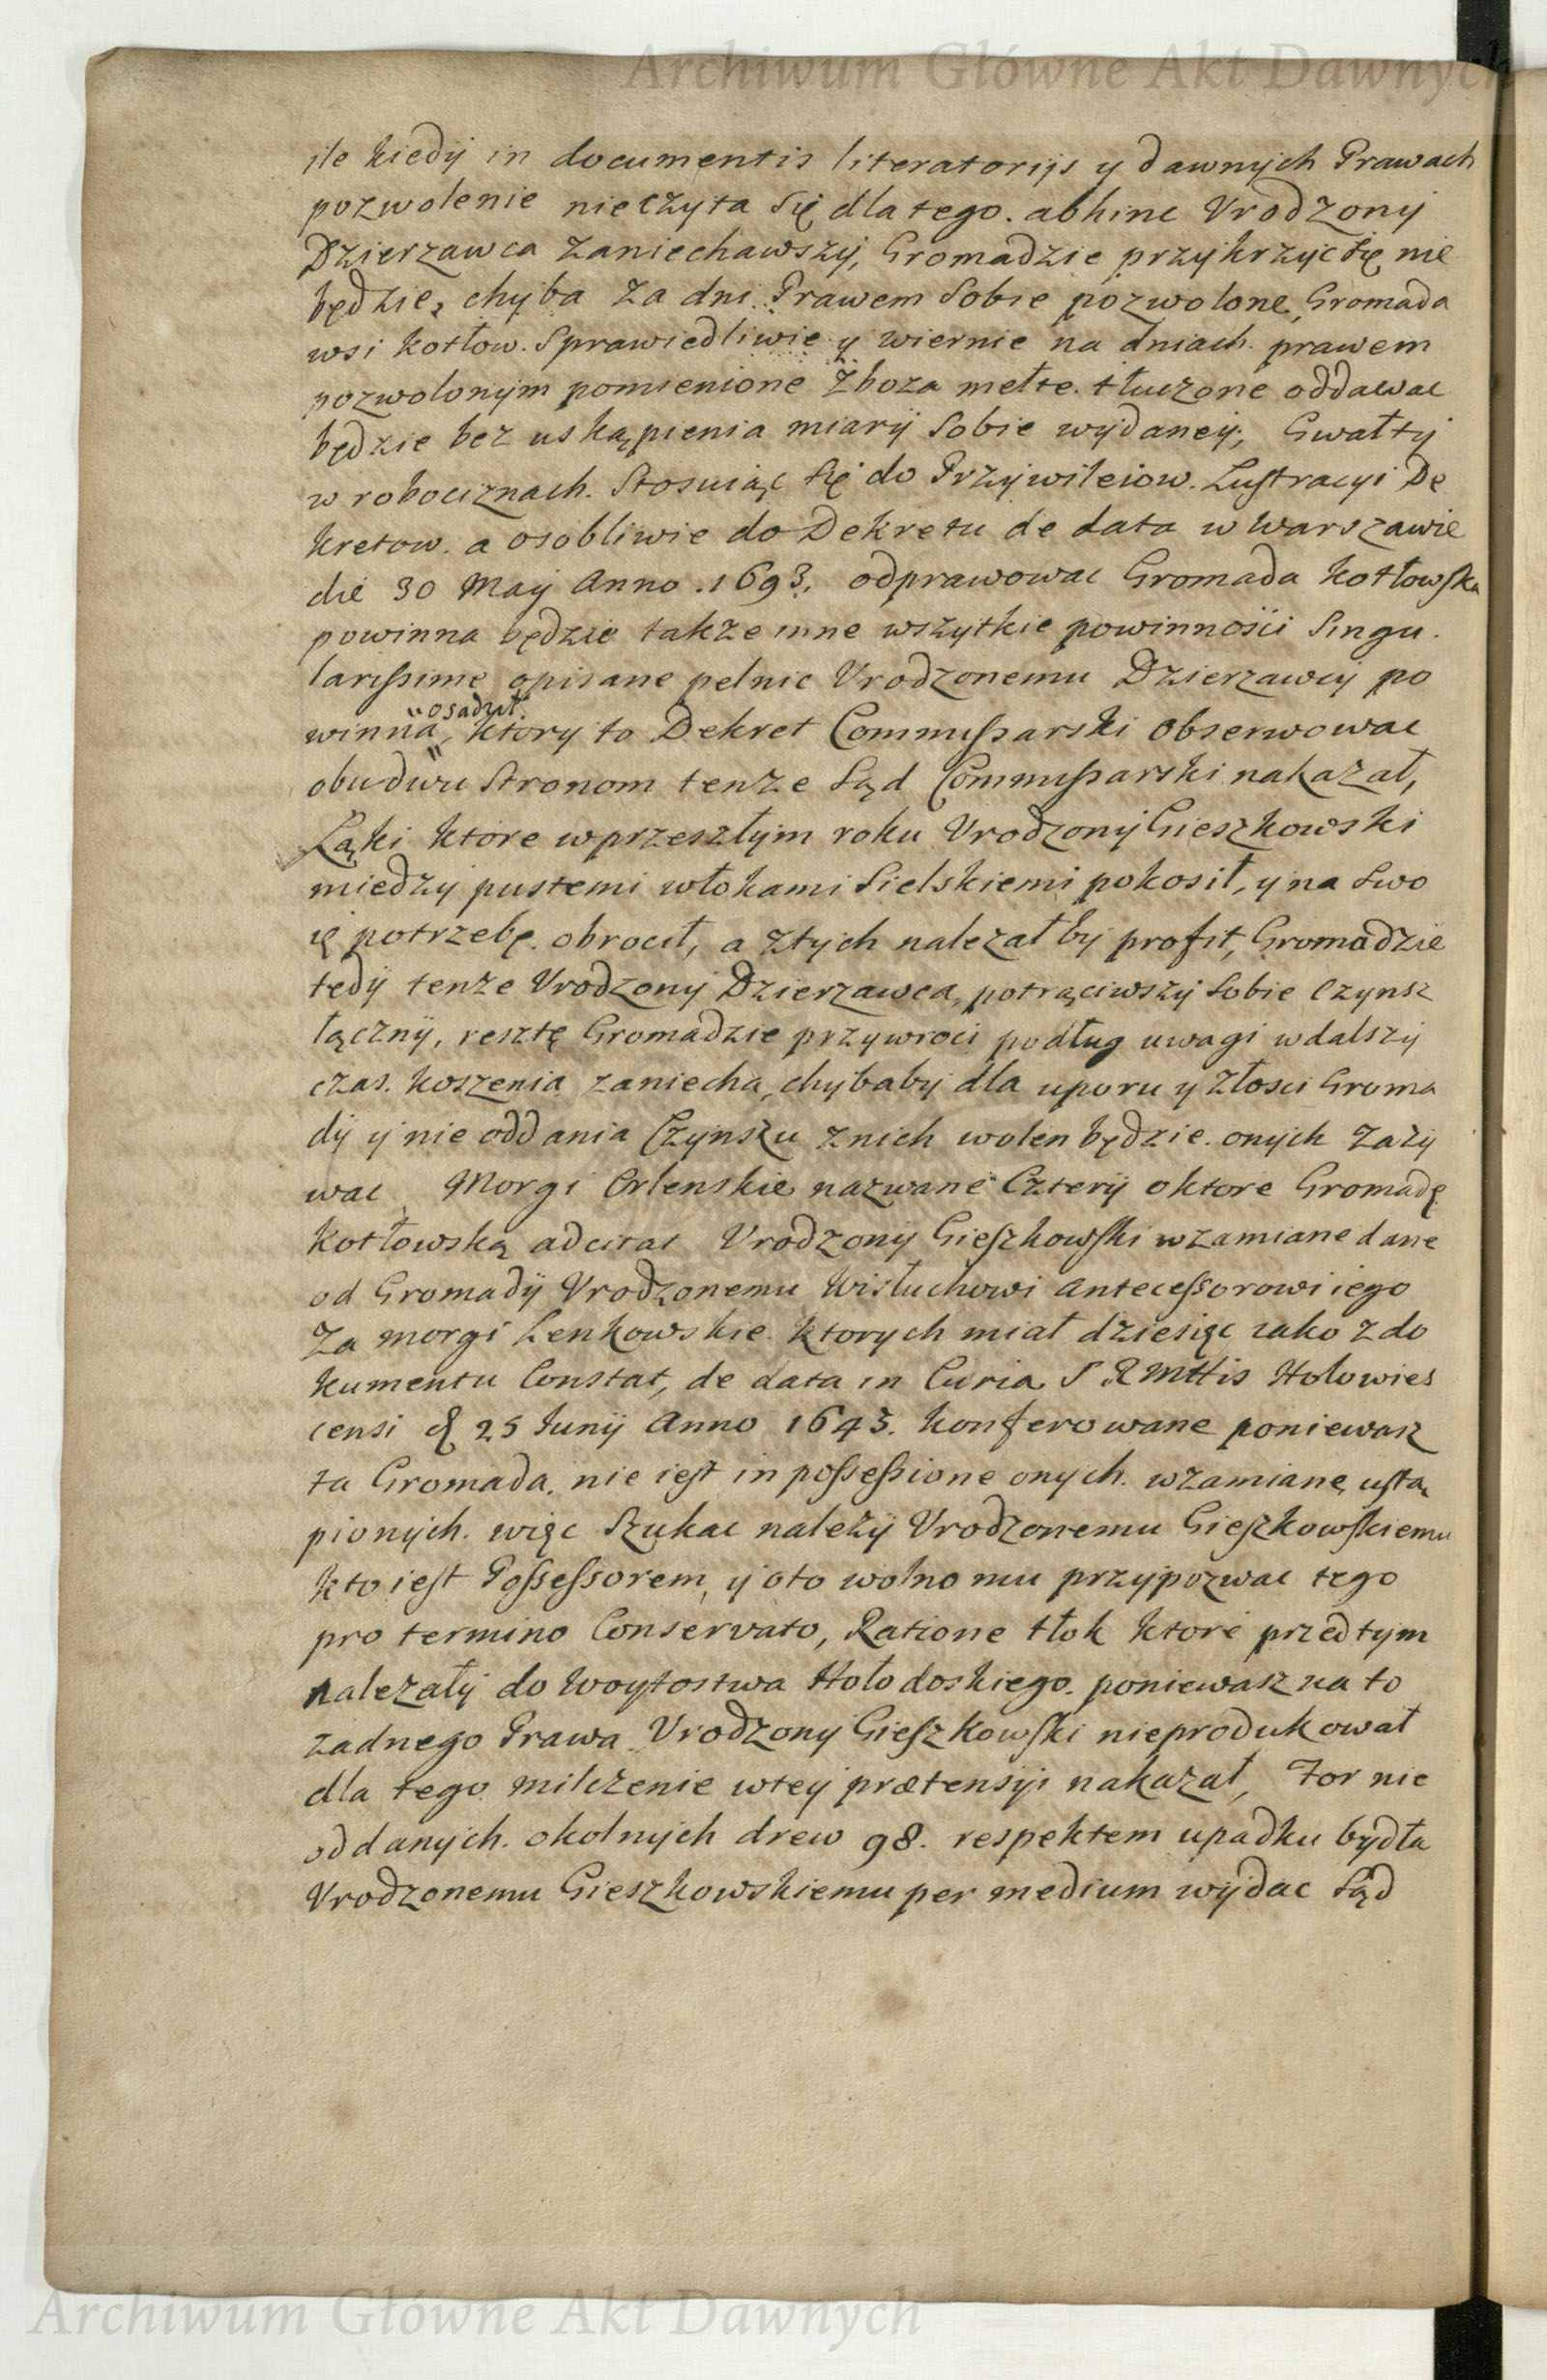 Archiwum Główne Akt Dawnych
ile kiedÿ in documentis literatorijs y dawnych Prawach
pozwolenie nieczyta się dla tego. abhinc Vrodzony
Dzierzawca zaniechawszÿ, Gromadzie przykrzyc się nie
będzie, chyba za dni Prawem sobie pozwolone, Gromada
wsi Kotłow. Sprawiedliwie y wiernie na dniach. prawem
pozwolonym pomienione Zboza mełte. tłuczone oddawac
będzie bez uskąpienia miarÿ sobie wydaneÿ, Gwałty
w robociznach. Stosuiąc się do Przywileiow. Lustracyi De
kretow. a osobliwie do Dekretu de data w Warszawie
die 30 Maÿ Anno .1693. odprawowac Gromada Kotłowska
powinna będzie takze inne wszytkie powinności Singu.
larissime opisane pelnic Vrodzonemu Dzierzawcy po
osadził.
winna, ktory to Dekret Commissarski obserwowac
obudwu Stronom tenze Sąd Commissarski nakazał,
Łąki ktore w przeszłym roku Vrodzony Gieszkowski
miedzy pustemi włokami Sielskiemi pokosił, y na swo
ię potrzebę. obrocił, a ztych nalezałby profit, Gromadzie
tedÿ tenze Vrodzony Dzierzawca, potrąciwszy sobie Czynsz
łącznÿ, resztę Gromadzie przywroci podług uwagi wdalszy
czas. koszenia zaniecha, chybaby dla uporu y złosci Groma
dÿ y nie oddania Czynszu znich wolen będzie. onych zazy
wac, Morgi Orlenskie nazwane Czterÿ oktore Gromadę
Kotłowską adcitac Vrodzony Gieszkowski wzamiane dane
od Gromadÿ Vrodzonemu Wisłuchowi Antecessorowi iego
Za morgi Lenkowskie. ktorych miał dziesięc iako z do
kumentu Constat, de data in Curia S R Mttis Holowies
censi d 25 Junÿ Anno 1643. konferowane poniewasz
ta Gromada. nie iest in possessione onych. wzamianę ustą
pionych. więc Szukac nalezÿ Vrodzonemu Gieszkowskiemu
kto iest Possessorem, y oto wolno mu przypozwac tego
pro termino Conservato, Ratione tłok ktore przedtym
nalezałÿ do Woytostwa Hołodoskiego. poniewasz na to
zadnego Prawa Vrodzony Gieszkowski nieprodukował
dla tego milczenie wtey prætensyi nakazał, For nie
oddanych. okolnych drew 98. respektem upadku bydła
Vrodzonemu Gieszkowskiemu per medium wÿdac Sąd
Archiwum Główne Akt Dawnych